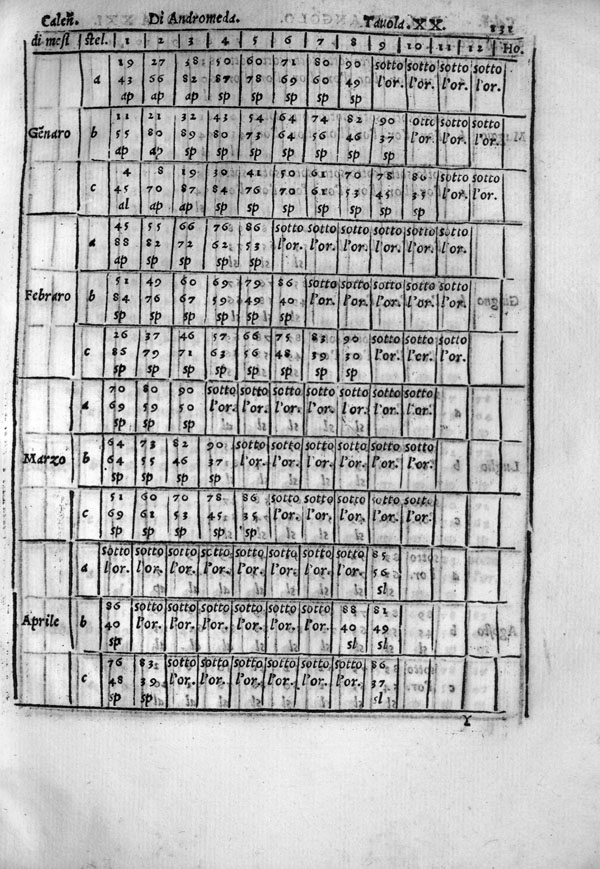 Caleñ. Di Andromeda. Tavola. XX. 131
di mesi stel. 1 2 3 4 5 6 7 8 9 10 11 12 Ho.
19 27 38 50 60 71 80 90 sotto sotto sotto sotto
a 43 66 82 87 78 69 60 49 l'or. l'or. l'or. l'or.
ap ap sp sp sp sp sp sp
11 21 32 43 54 64 74 82 90 otto sotto sotto
Gẽnaro b 55 80 89 80 73 64 56 46 37 l'or. l'or. l'or.
ap ap sp sp sp sp sp sp sp
4 8 19 30 41 50 61 70 78 86 sotto sotto
c 45 70 87 84 76 70 61 53 45 35 l'or. l'or.
al ap ap sp sp sp sp sp sp sp
45 55 66 76 86 sotto sotto sotto sotto sotto sotto
a 88 82 72 62 53 l'or. l'or. l'or. l'or. l'or. l'or.
ap sp sp sp sp
51 49 60 69 79 86 sotto sotto sotto sotto sotto
Febraro b 84 76 67 59 49 40 l'or. l'or. l'or. l'or. l'or.
sp sp sp sp sp sp
26 37 46 57 66 75 83 90 sotto sotto sotto
c 86 79 71 63 56 48 39 30 l'or. l'or. l'or.
sp sp sp sp sp sp sp sp
70 80 90 sotto sotto sotto sotto sotto sotto sotto
a 69 59 50 l'or. l'or. l'or. l'or. l'or. l'or. l'or.
sp sp sp
64 73 82 90 sotto sotto sotto sotto sotto sotto
Marzo b 64 55 46 37 l'or. l'or. l'or. l'or. l'or. l'or.
sp sp sp sp
51 60 70 78 86 sotto sotto sotto sotto sotto
c 69 61 53 45 35 l'or. l'or. l'or. l'or. l'or.
sp sp sp sp sp
sotto sotto sotto sotto sotto sotto sotto sotto 85
a l'or. l'or. l'or. l'or. l'or. l'or. l'or. l'or. 56
sl
86 sotto sotto sotto sotto sotto sotto 88 81
Aprile b 40 l'or. l'or. l'or. l'or. l'or. l'or. 40 49
sp sl sl
76 83 sotto sotto sotto sotto sotto sotto 86
c 48 39 l'or. l'or. l'or. l'or. l'or. l'or. 37
sp sp sl
Y